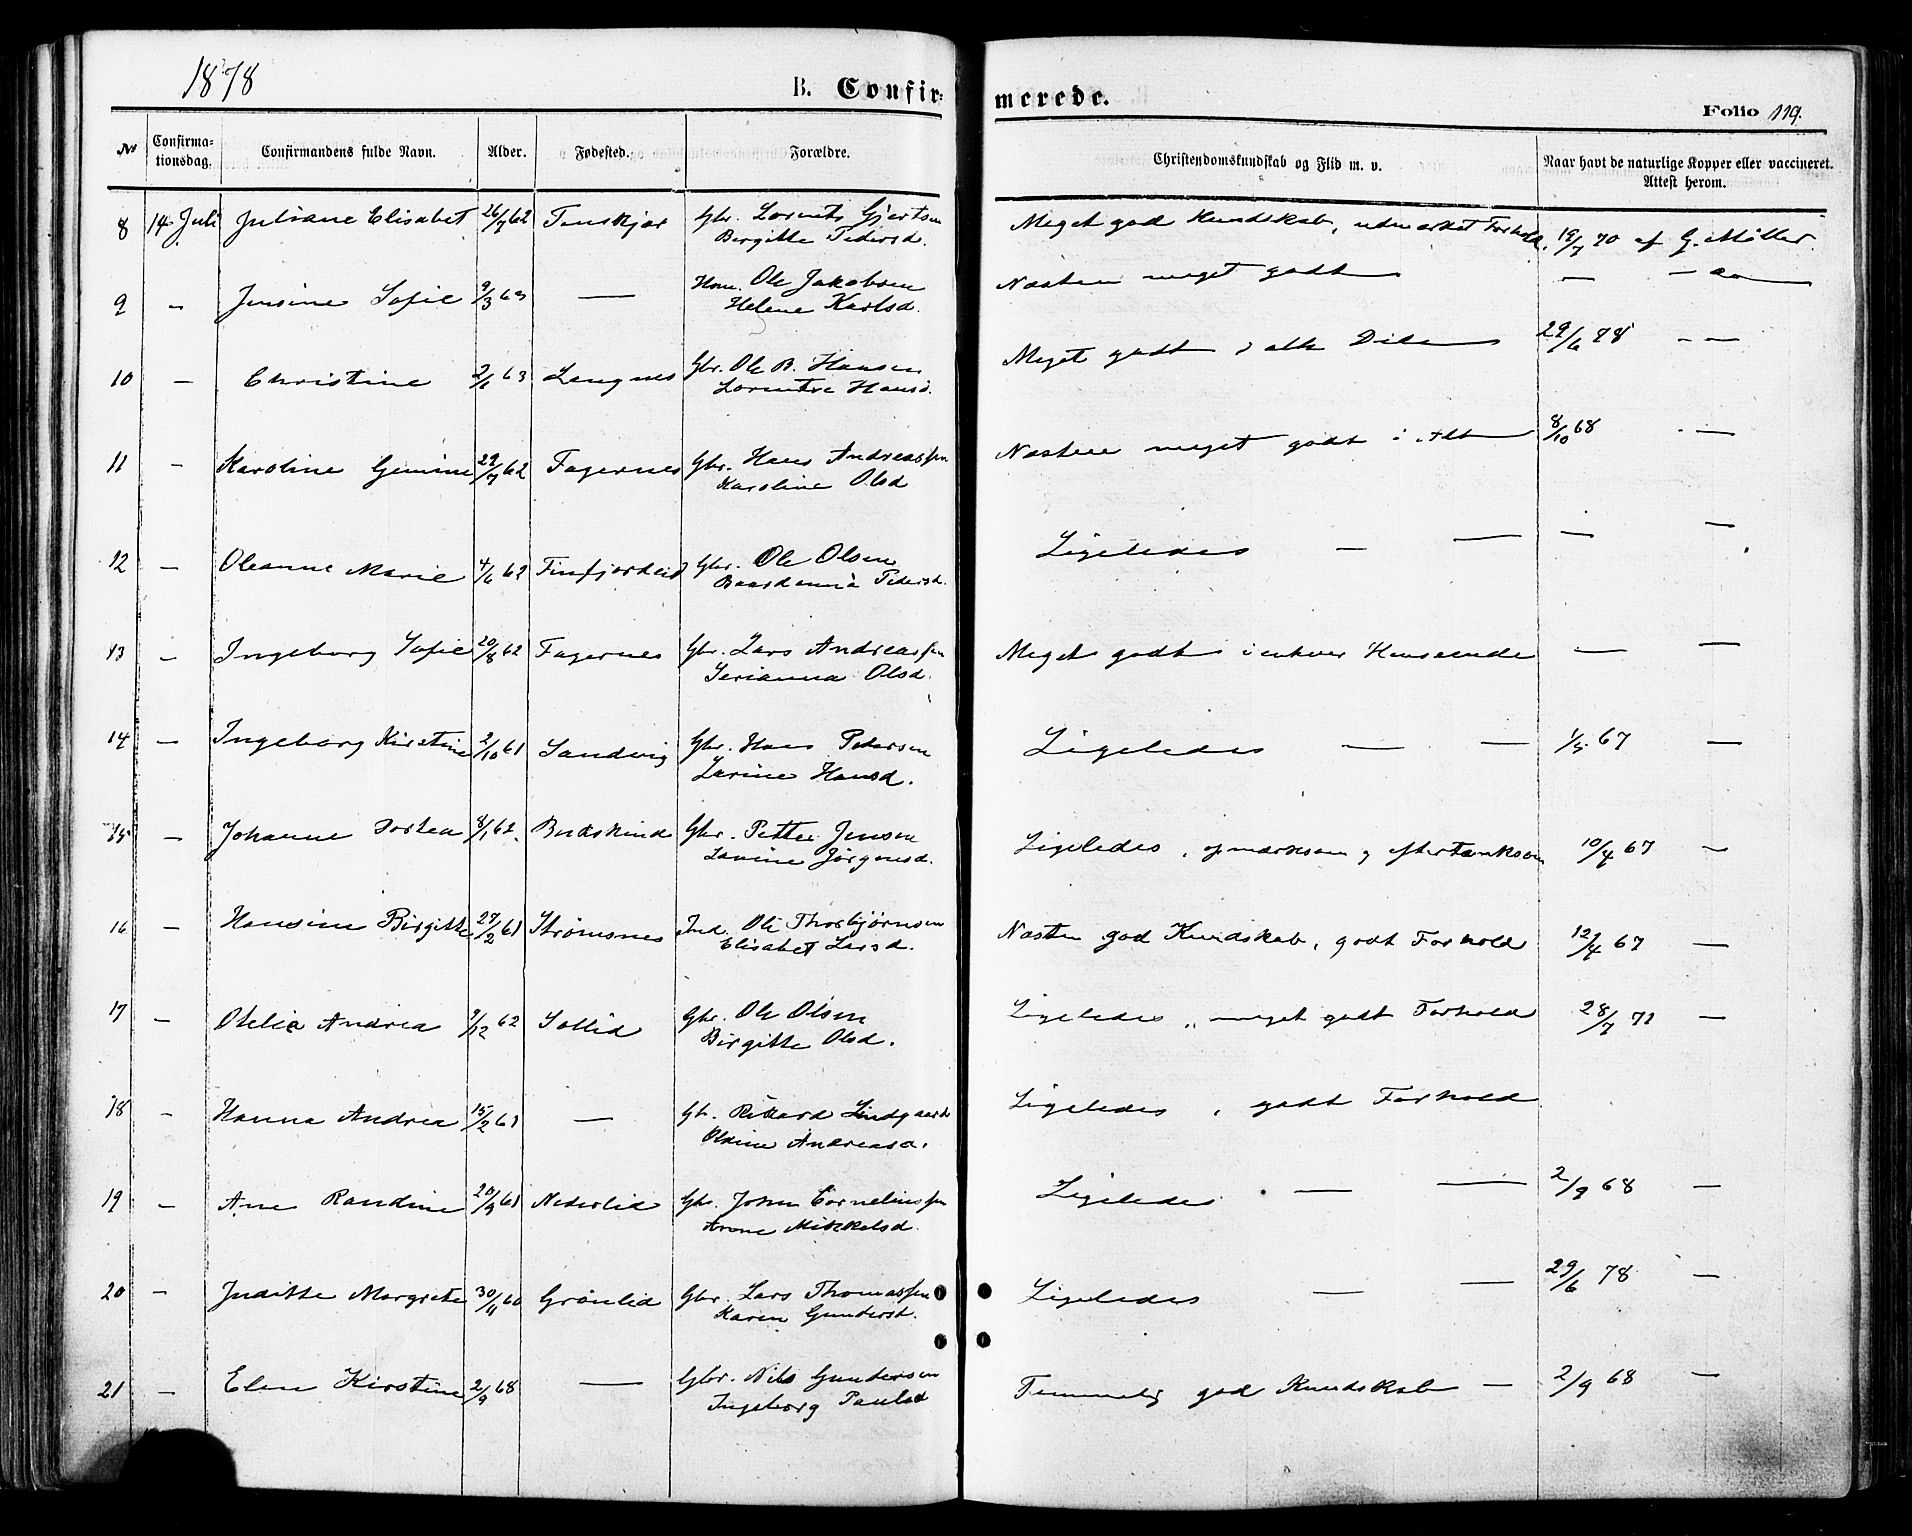 1878
B. Confir-
merede.
Folio 119.
No
Confirma-
tionsdag.
Confirmandens fulde Navn.
Alder.
Fødested.
Forældre.
Christendomskundskab og Flid m. v.
Naar havt de naturlige Kopper eller vaccineret.
Attest herom.
8 14 Juli Juliane Elisabet 26/7 62 Finskjær Gbr. Lorents Gjertsen Meget god Kundskab, udmærket Forhold. 19/7 70 af G. Møller.
Birgitte Pedersd.
9 - Jensine Sofie 9/3 63 — Ole Jakobsen Næsten meget godt — — do
Helene Karlsd.
10 - Christine 2/1 63 Langnes Gbr. Ole B. Hansen Meget godt i alle Dele 29/6 78 - -
Lorentse Hansd.
11 - Karoline Gemine 29/7 62 Fagernes Gbr. Hans Andreassen Næsten meget godt i Alt 8/10 68 - —
Karoline Olsd
12 - Oleanne Marie 4/6 62 Finfjordeid Gbr. Ole Olsen Ligeledes — — — —
Pedersd.
13 - Ingeborg Sofie 20/8 62 Fagernes Gbr. Lars Andreassen Meget godt i enhver Henseende — —
Serianna Olsd.
14 - Ingeborg Kirstine 2/10 61 Sandvig Gbr. Hans Pedersen Ligeledes — — 1/5 67 —
Larine Hansd.
15 - Johanne Dortea 8/1 62. Bukskind Gbr. Petter Jensen Ligeledes, opmærksom og eftertænksom 10/4 67 —
Lavine Jørgensd.
16 - Hansine Birgitte 27/2 61 Strømsnes Ind. Ole Thorbjørnsen Næsten god Kundskab, godt Forhold 12/4 67 —
Elisabet Larsd.
17 - Otelie Andrea 9/12 62 Sollid Gbr. Ole Olsen Ligeledes, meget godt Forhold 28/7 71 —
Birgitte Olsd.
18 - Hanna Andrea 15/2 61 — Gbr. Rikard Lindgaard Ligeledes, godt Forhold
Oldine Andreasd.
19 - Ane Randine 20/9 61 Nederlid Gbr. John Corneliussen Ligeledes. — — 2/9 68 —
Arone Mikkelsd.
20 - Juditte Margrete 30/11 60 Grønlid Gbr. Lars Thomassen Ligeledes — — 29/6 78 —
Karen Gundersd.
21 - Elen Kirstine 2/9 68 — Gbr. Nils Gundersen Temmelig god Kundskab — 2/9 68 —
Ingeborg Paulsd